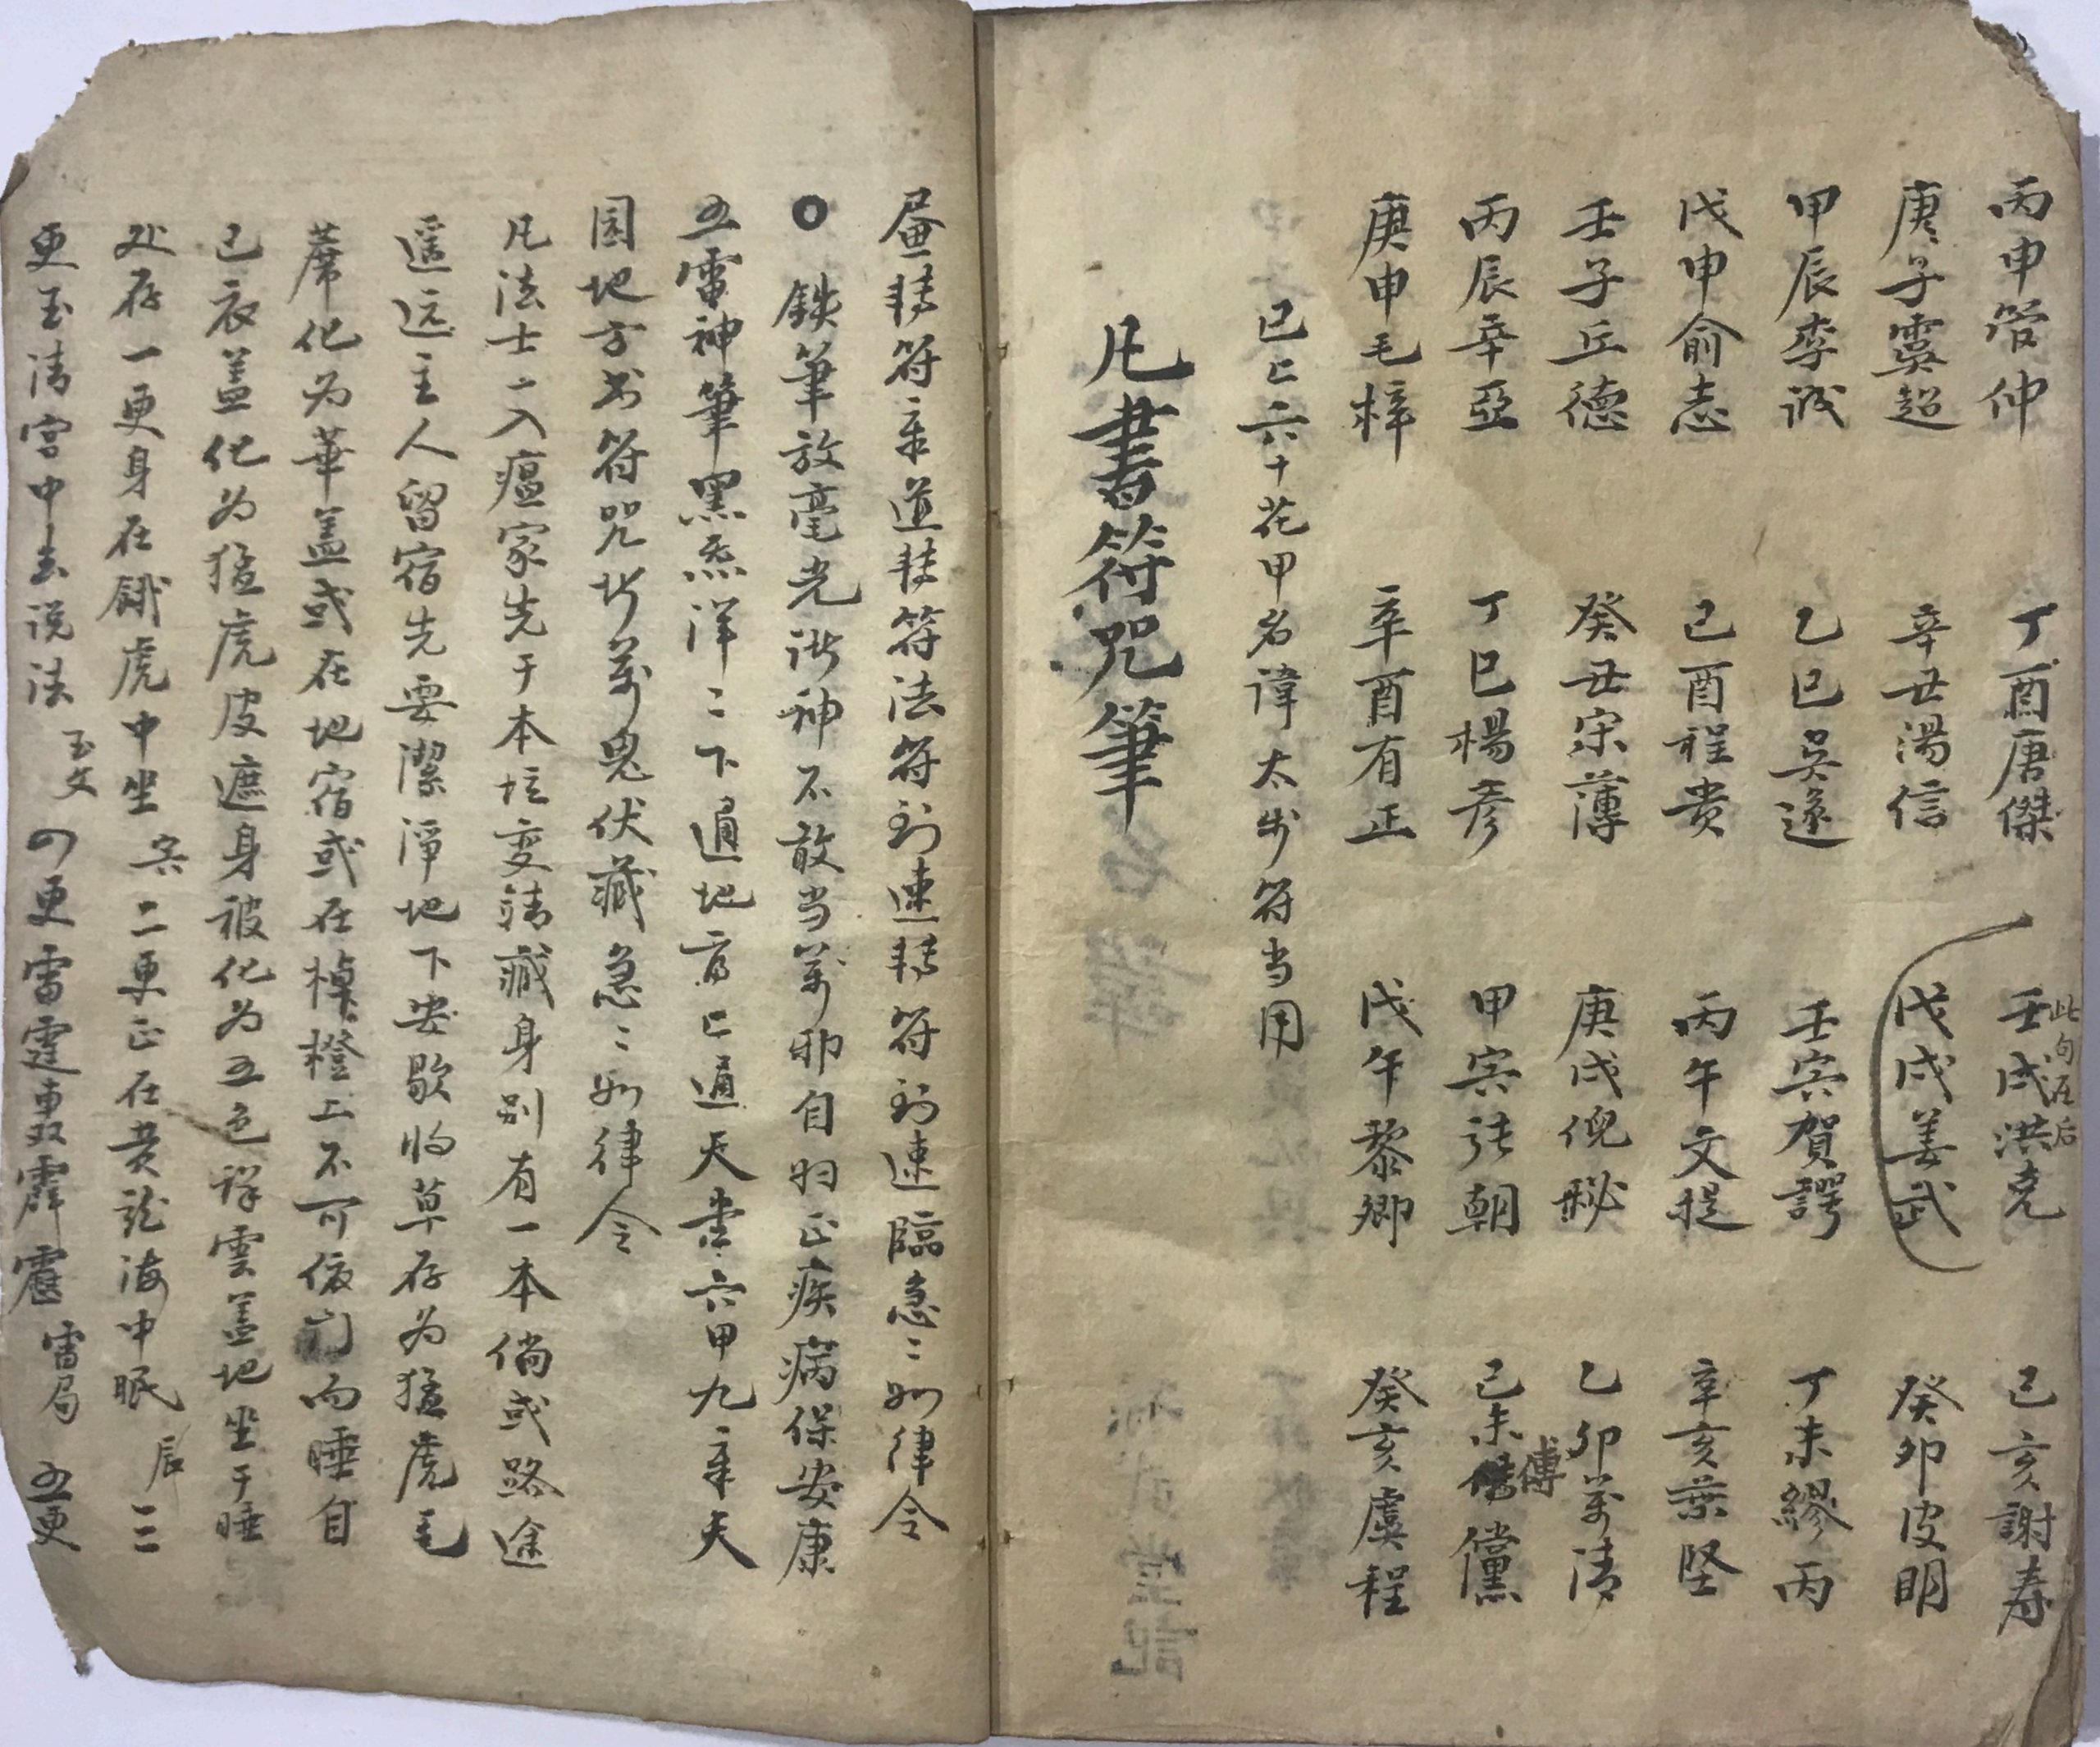 丙申管仲 丁酉唐傑 壬戌洪克 己亥謝寿
此句在后
庚子虞超 辛丑湯信 戊戌姜武 癸卯皮明
甲辰李诚 乙巳吴遂 壬寅賀諤 丁未繆丙
戊申俞志 己酉程贵 丙午文提 辛亥葉坚
壬子丘德 癸丑宋薄 庚戌倪秘 乙卯萬清
丙辰辛亞 丁巳楊彦 甲寅张朝 己未傅儻
庚申毛梓 辛酉有正 戊午黎卿 癸亥虞程
已上六十花甲名諱太岁符当用
凡書符咒筆
符章道符法符到速符到速臨急〻如律令
○ 鉄筆放毫光诸神不敢当萬邪自归正疾病保安康
五雷神筆黑炁洋〻下通地府上通天書六甲九章天
囯地方书符咒斩萬鬼伏藏急〻如律令
凡法士一入瘟家先于本坛变請藏身别有一本倘或路途
遥远主人留宿先要潔淨地下安歇将草存为猛虎毛
蓆化为華盖或在地宿或在棹橙上不可仮而睡自
己衣盖化为猛虎皮遮身被化为五色祥雲盖地坐于睡
处存一更身在餓虎中坐 寅 二更正在黄龙海中眠 辰 三
更玉清宫中去说法 玉文 四更雷霆轰霹靂 雷局 五更